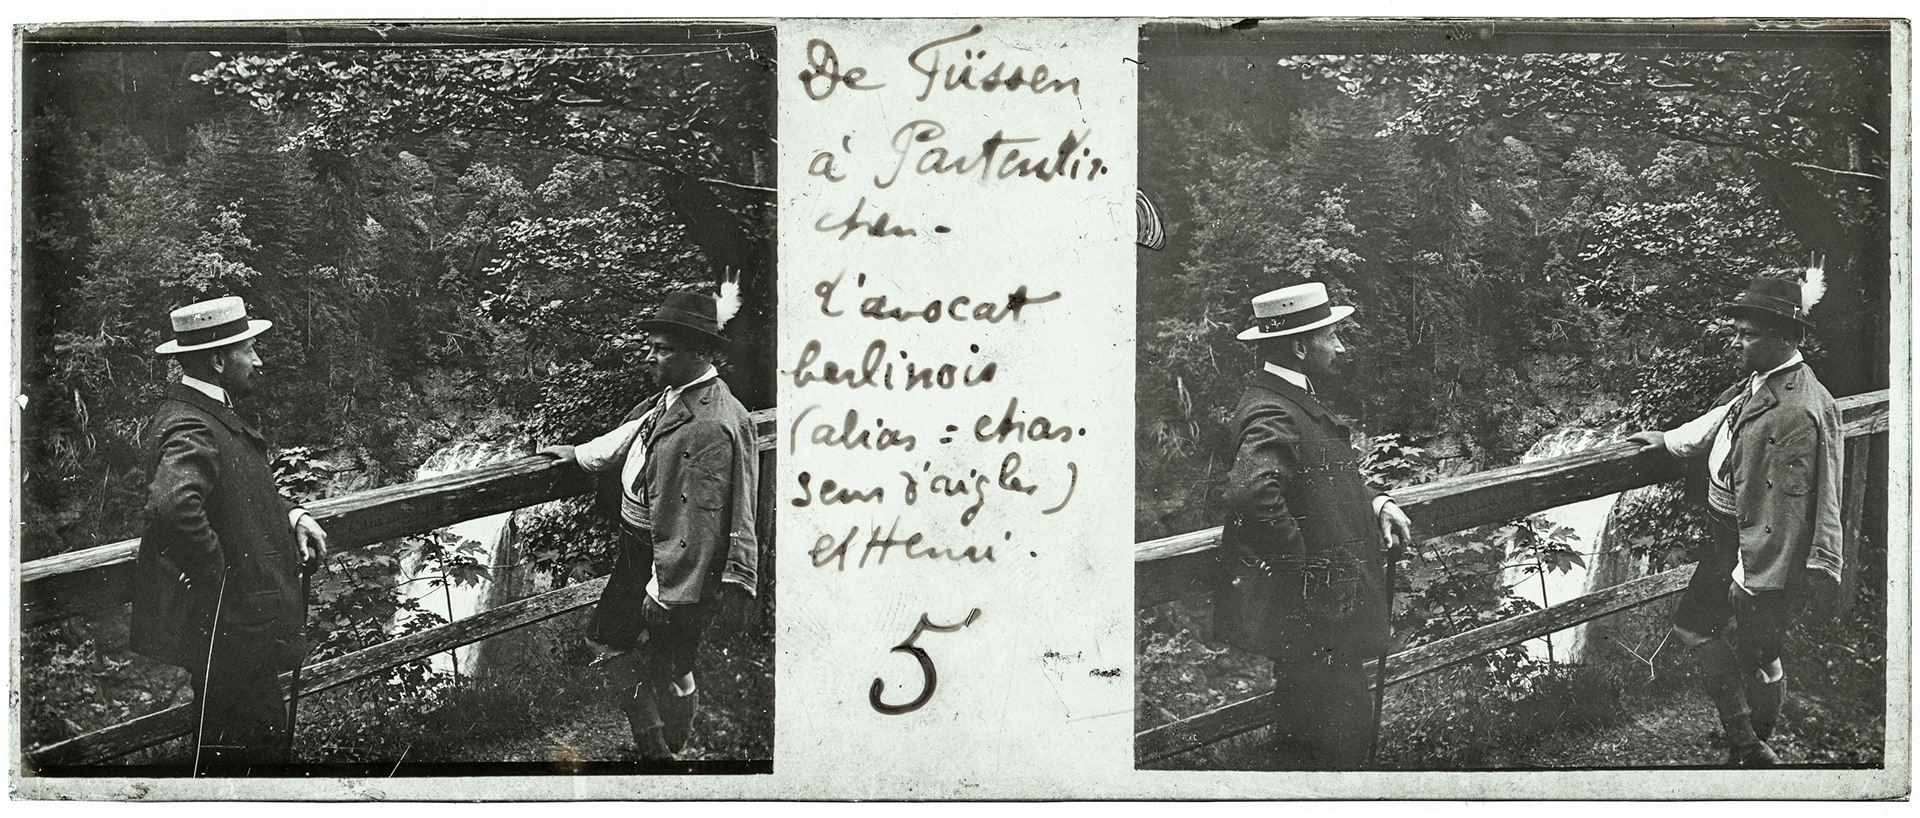 De Füssen
à Partenkir.
chen -
L'avocat
berlinois
(alias = chas.
seur d'aigles)
et Henri.
5